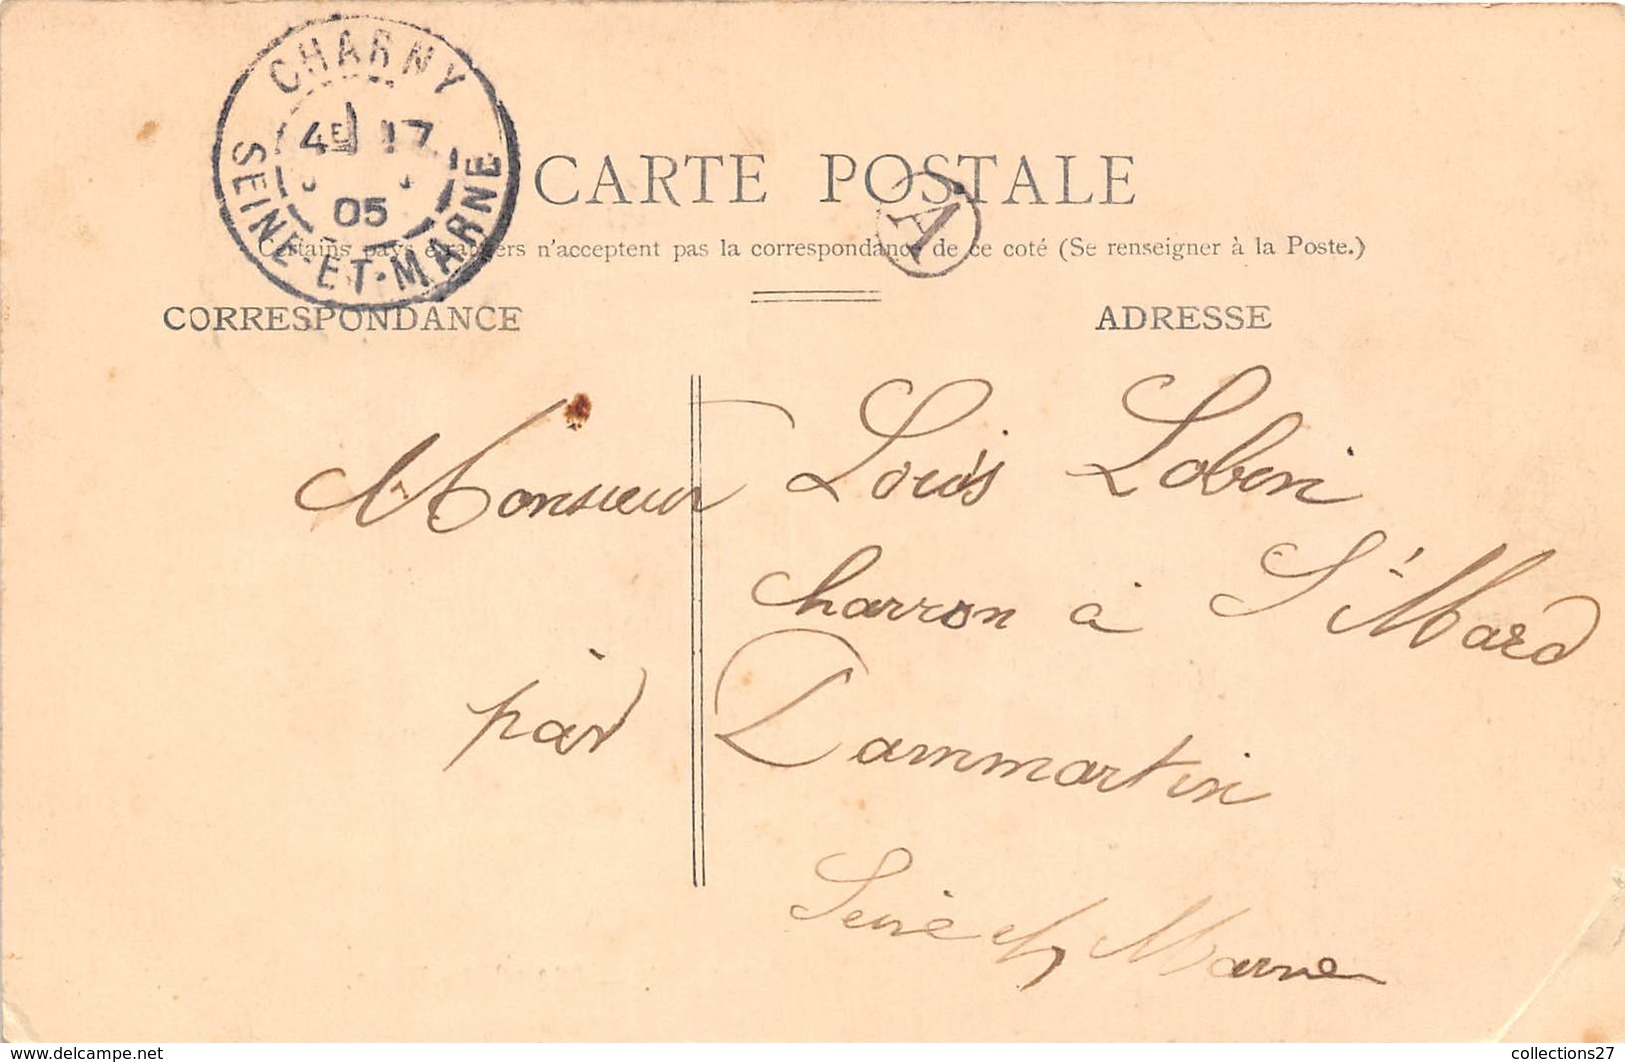 CHARNY
4E 17
05
SEINE-ET-MARNE
CARTE POSTALE
A
Certains pays étrangers n'acceptent pas la correspondance de ce coté (Se renseigner à la Poste.)
CORRESPONDANCE
ADRESSE
Monsieur Louis Lobin
charron à St Mard
par Dammartin
Seine et Marne
www.delcampe.net
collections27